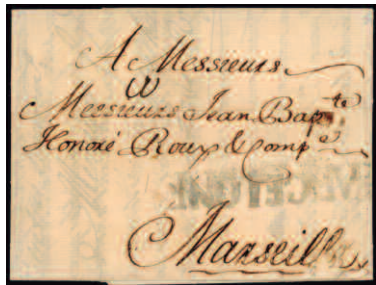 A Messieurs
Messieurs Jean Bap.te
Honoré Roux & Comp.e
Marseille